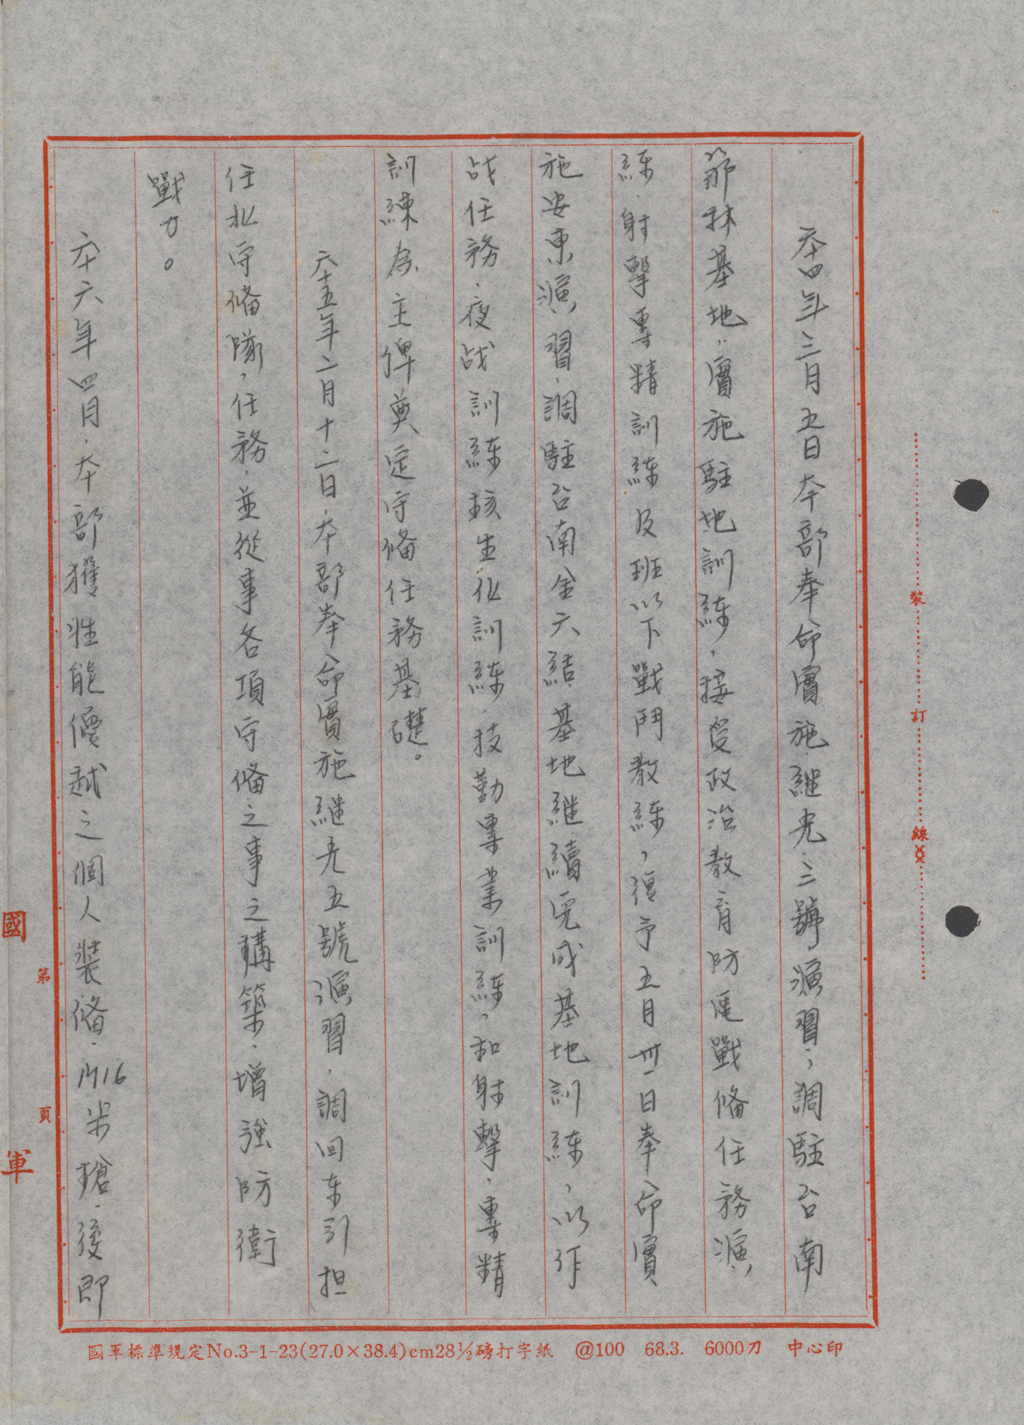 六四年三月五日本部奉命實施継光三號演習，調駐台南
節林基地，實施駐地訓練，接受政治教育防區戰備任務演
練，射擊專精訓練及班以下戰鬥教練，復于五月卅日奉命實
施安東演習，調駐台南金六結基地継續完成基地訓練，以作
战任務，夜战訓練核生化訓練，技勤專業訓練，和射擊，專精
訓練為主俾奠定守俻任務基礎。
六五年二月十二日，本部奉命實施継光五號演習，調回東引担
任北守俻隊，任務，並從事各項守俻之事之構築，增強防衛
戰力。
六六年四月，本部獲性能優越之個人裝俻，M16米槍，後即
裝 訂 線
國 軍
第 頁
國軍標準規定No.3-1-23(27.0×38.4)cm28½磅打字紙 @100 68.3. 6000刀 中心印